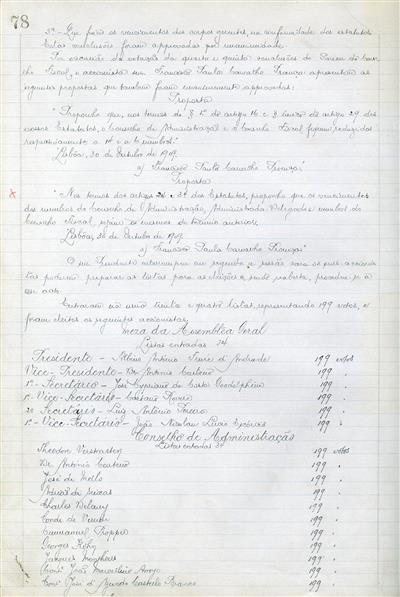 78
3º - Que fixe os vencimentos dos corpos gerentes, na conformidade dos estatutos
Estas conclusões foram approvadas por unanimidade.
Por occasião da votação da quarta e quinta conclusões do Parecer do Conse-
lho Fiscal, o accionista snr. Francisco Paula Carvalho França apresentou as
seguintes propostas que tambem foram unanimemente approvadas:
Proposta
"Proponho que, nos termos do § 1º do artigo 16 e § unico do artigo 29 dos
nossos Estatutos, o Conselho de Administração e o Conselho Fiscal fiquem reduzidos
respectivamente a 11 e a 6 membros."
"Lisboa, 30 de Outubro de 1909.
a) Francisco Paula Carvalho França"
Proposta
"Nos termos dos artigos 24 e 31 dos Estatutos, proponho que os vencimentos
dos membros do Conselho de Administração, Administrador Delegado e membros do
Conselho Fiscal, sejam os mesmos do triennio anterior.
Lisboa, 30 de Outubro de 1909.
a) Francisco Paula Carvalho França"
O snr. Presidente interrompeu em seguida a sessão para os snrs. accionis-
tas poderem preparar as listas para as eleições e, sendo reaberta, procedeu-se a
esse acto.
Entraram na urna trinta e quatro listas, representando 199 votos, e
foram eleitos os seguintes accionistas:
Meza da Assembléa Geral
Listas entradas 34
Presidente - Antonio Freire d'Andrade 199 votos
Vice-Presidente - Dr. Antonio Centeno 199 "
1º Secretário - José Cypriano da Costa Goodolphim 199 "
1º Vice-Secretário - Caetano 199 "
2º Secretário - Luiz António 199 "
2º Vice-Secretário - João Nicolau 199 "
Conselho de Administração
Listas entradas 34
Theodor Verstraeten 199 votos
Dr. António Centeno 199 "
José de Mello 199 "
199 "
Charles Delaury 199 "
Conde de 199 "
Emmanuel Propper 199 "
Georges Kohn 199 "
Jacques 199 "
Consº João Marcellino Arroyo 199 "
Consº José d'Azevedo Castello Branco 199 "